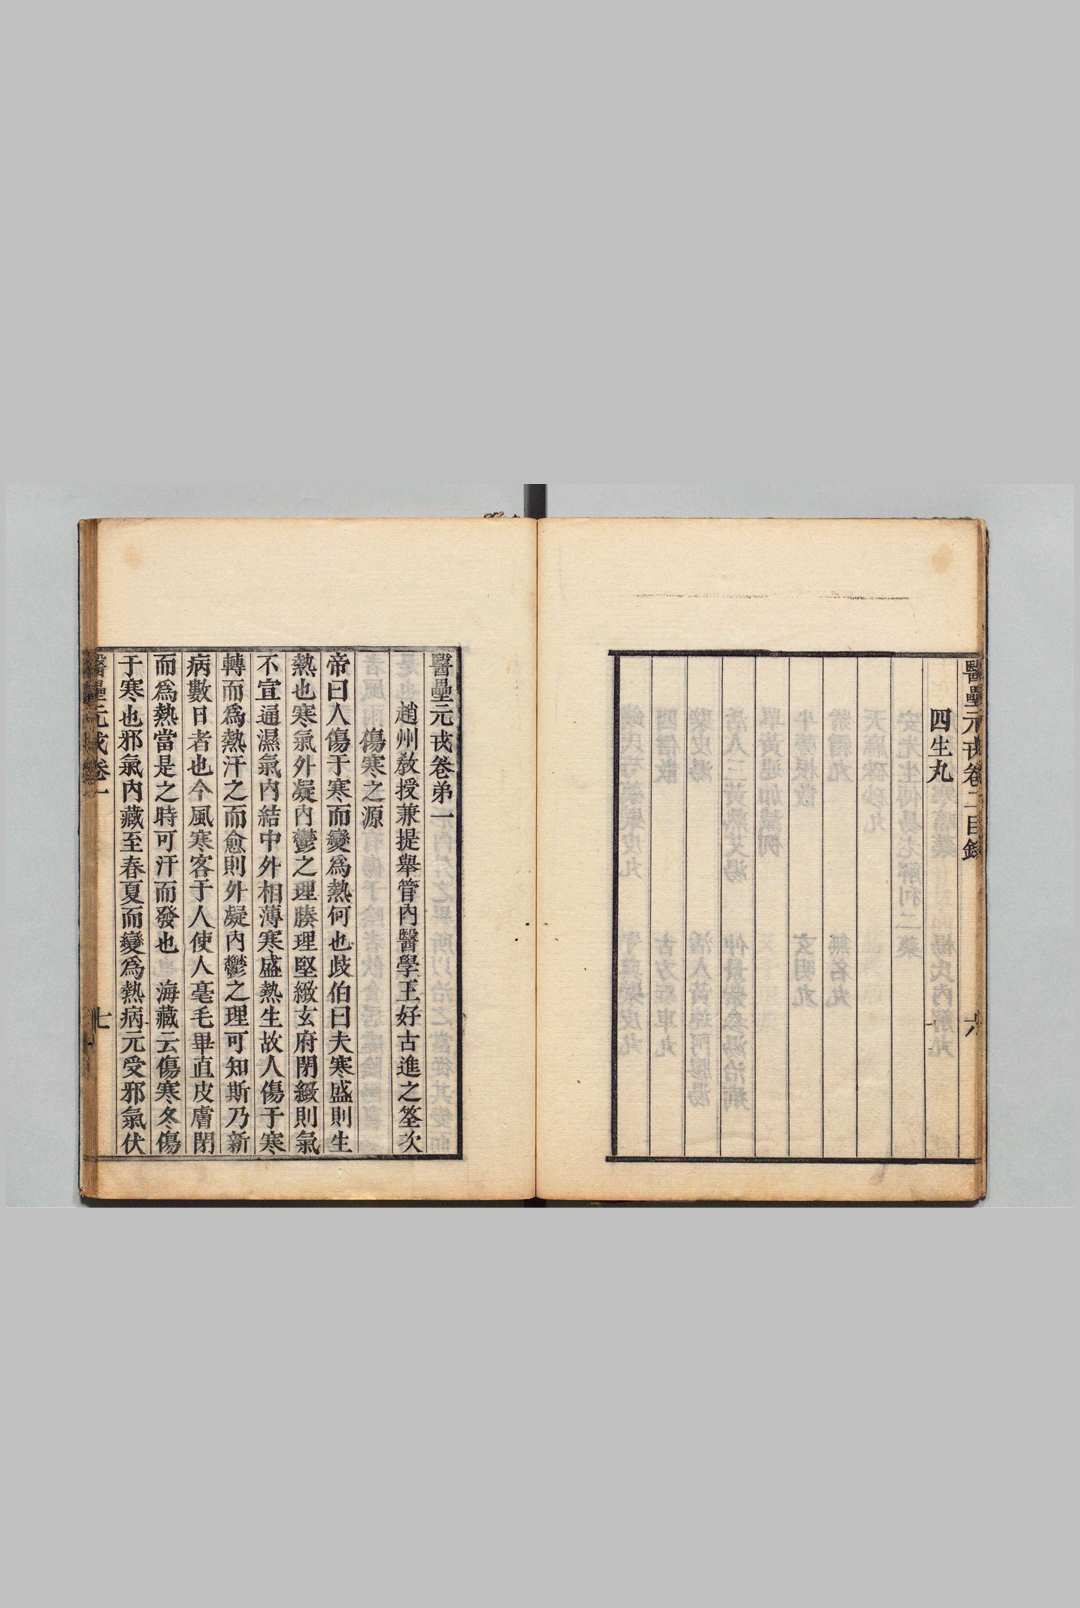 醫壘元戎卷二目錄
六
四生丸
醫壘元戎卷弟一
趙州敎授兼提舉管內醫學王好古進之筌次
傷寒之源
帝曰人傷于寒而變爲熱何也歧伯曰夫寒盛則生
熱也寒氣外凝內鬱之理腠理堅緻玄府閉緻則氣
不宣通濕氣內結中外相薄寒盛熱生故人傷于寒
轉而爲熱汗之而愈則外凝內鬱之理可知斯乃新
病數日者也今風寒客于人使人毫毛畢直皮膚閉
而爲熱當是之時可汗而發也 海藏云傷寒冬傷
于寒也邪氣內藏至春夏而變爲熱病元受邪氣伏
醫壘元戎卷一
七